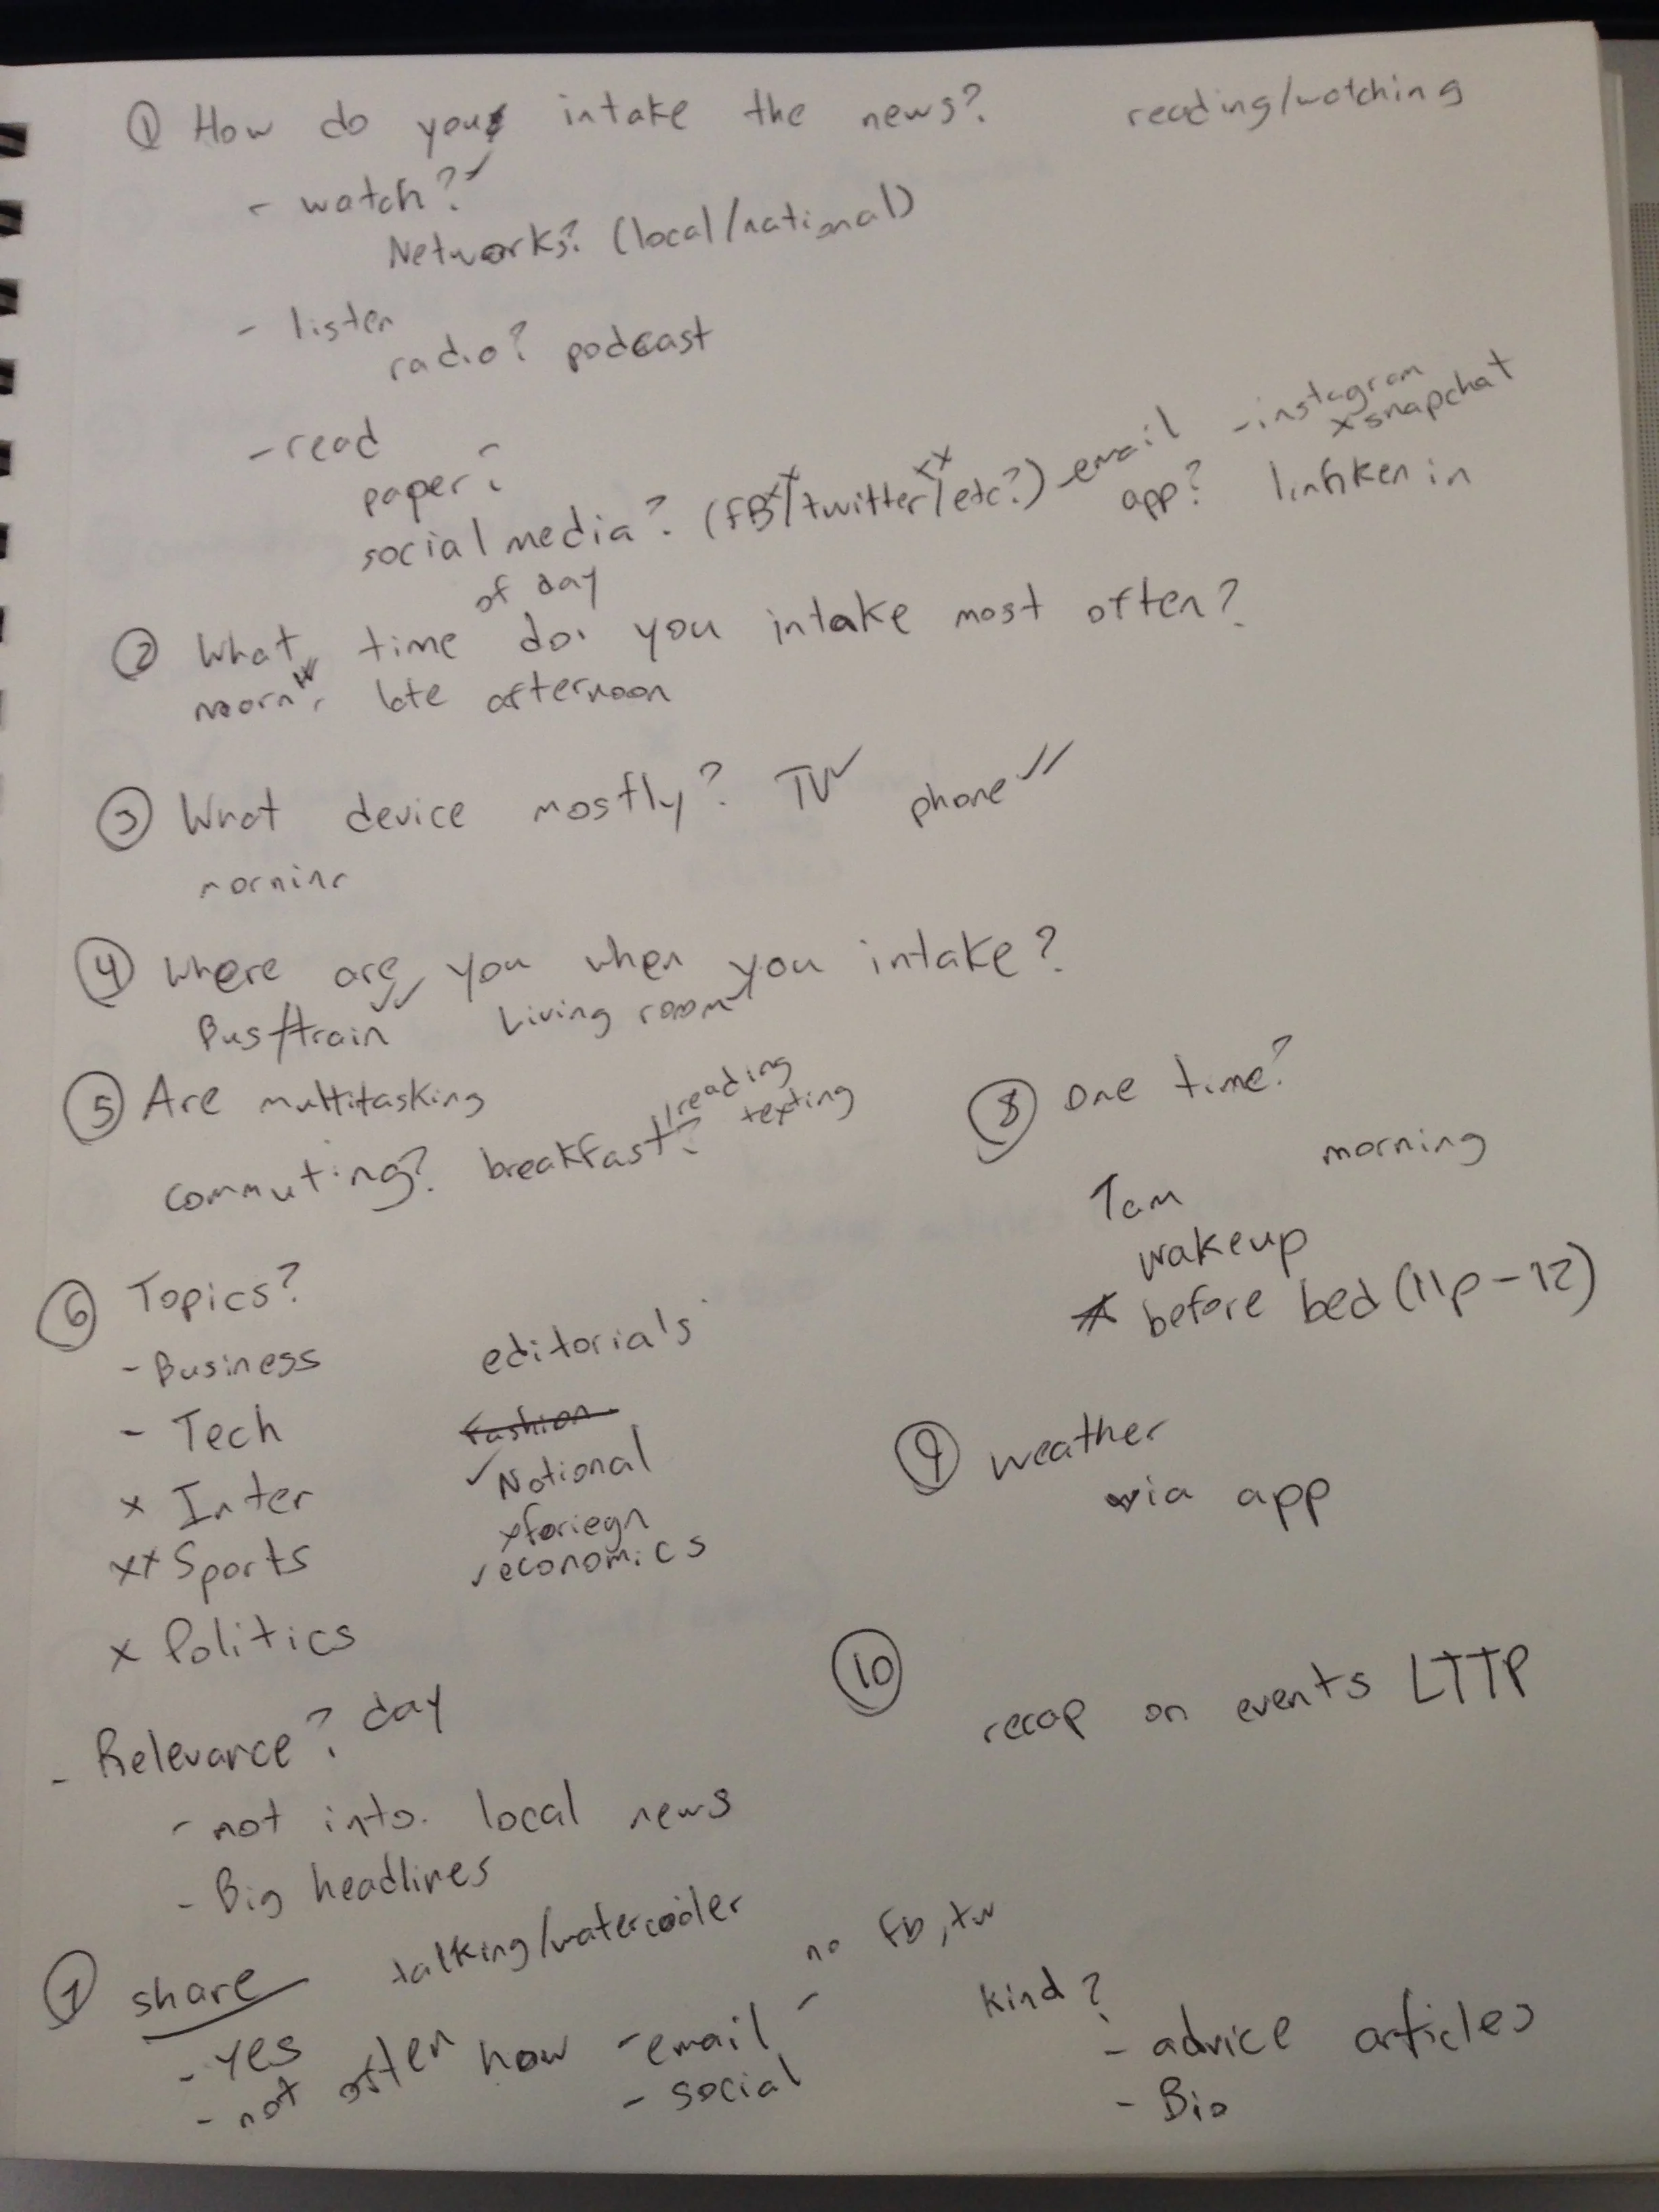 ① How do you intake the news? reading/watching
- watch? ✓
Networks? (local/national)
- listen
radio? podcast
- read
paper?
social media? (FB xx/twitter xx/etc?) - email - instagram
x snapchat
app? linkken in
② What time of day do you intake most often?
morn ✓✓, late afternoon
③ What device mostly? TV ✓ phone ✓✓
mornin
④ Where are you when you intake?
Bus/train ✓✓ Living room ✓
⑤ Are multitasking
commuting? breakfast? reading
texting
⑥ Topics?
- Business
- Tech
x Inter
xx Sports
x Politics
editorials
fashion
✓ National
x foriegn
✓ economics
- Relevance? day
- not into. local news
- Big headlines
⑦ share talking/watercooler
- yes
- not often how - email - no FB, tw
- social
kind?
- advice articles
- Bio
⑧ one time?
morning
7am
wakeup
* before bed (11p-12)
⑨ weather
via app
⑩ recap on events LTTP